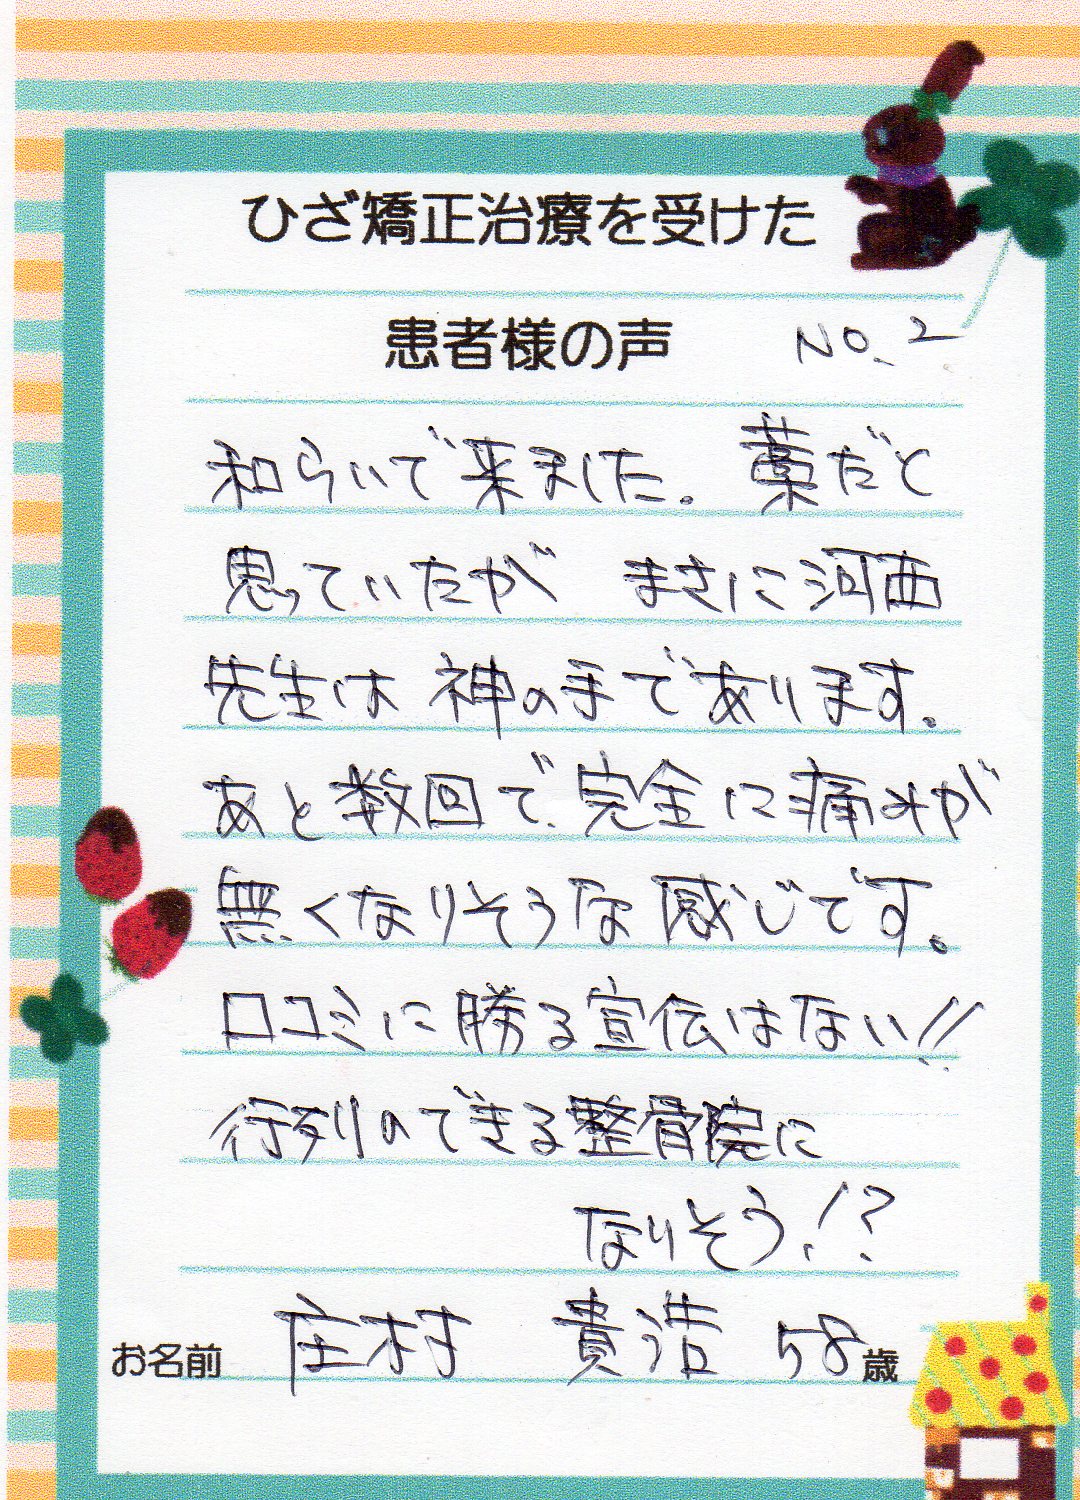 ひざ矯正治療を受けた
患者様の声 NO.2
和らいで来ました。藁だと
思っていたが まさに河西
先生は 神の手であります。
あと数回で、完全に痛みが
無くなりそうな感じです。
口コミに勝る宣伝はない!!
行列のできる整骨院に
なりそう!?
お名前 庄村 貴浩 58歳